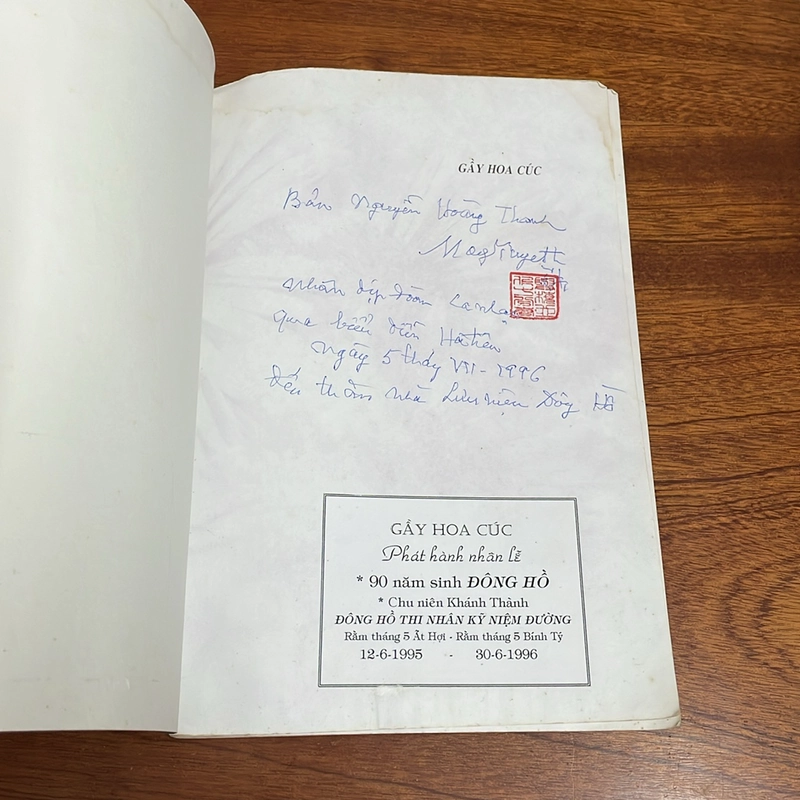 GẦY HOA CÚC
Bản Nguyễn Hoàng Thanh
Mộng Tuyết
nhân dịp đoàn ca nhạc
qua biểu diễn Hà tiên
Ngày 5 tháng VII - 1996
đến thăm nhà Lưu niệm Đông Hồ
GẦY HOA CÚC
Phát hành nhân lễ
* 90 năm sinh ĐÔNG HỒ
* Chu niên Khánh Thành
ĐÔNG HỒ THI NHÂN KỶ NIỆM ĐƯỜNG
Rằm tháng 5 Ất Hợi - Rằm tháng 5 Bính Tý
12-6-1995 - 30-6-1996